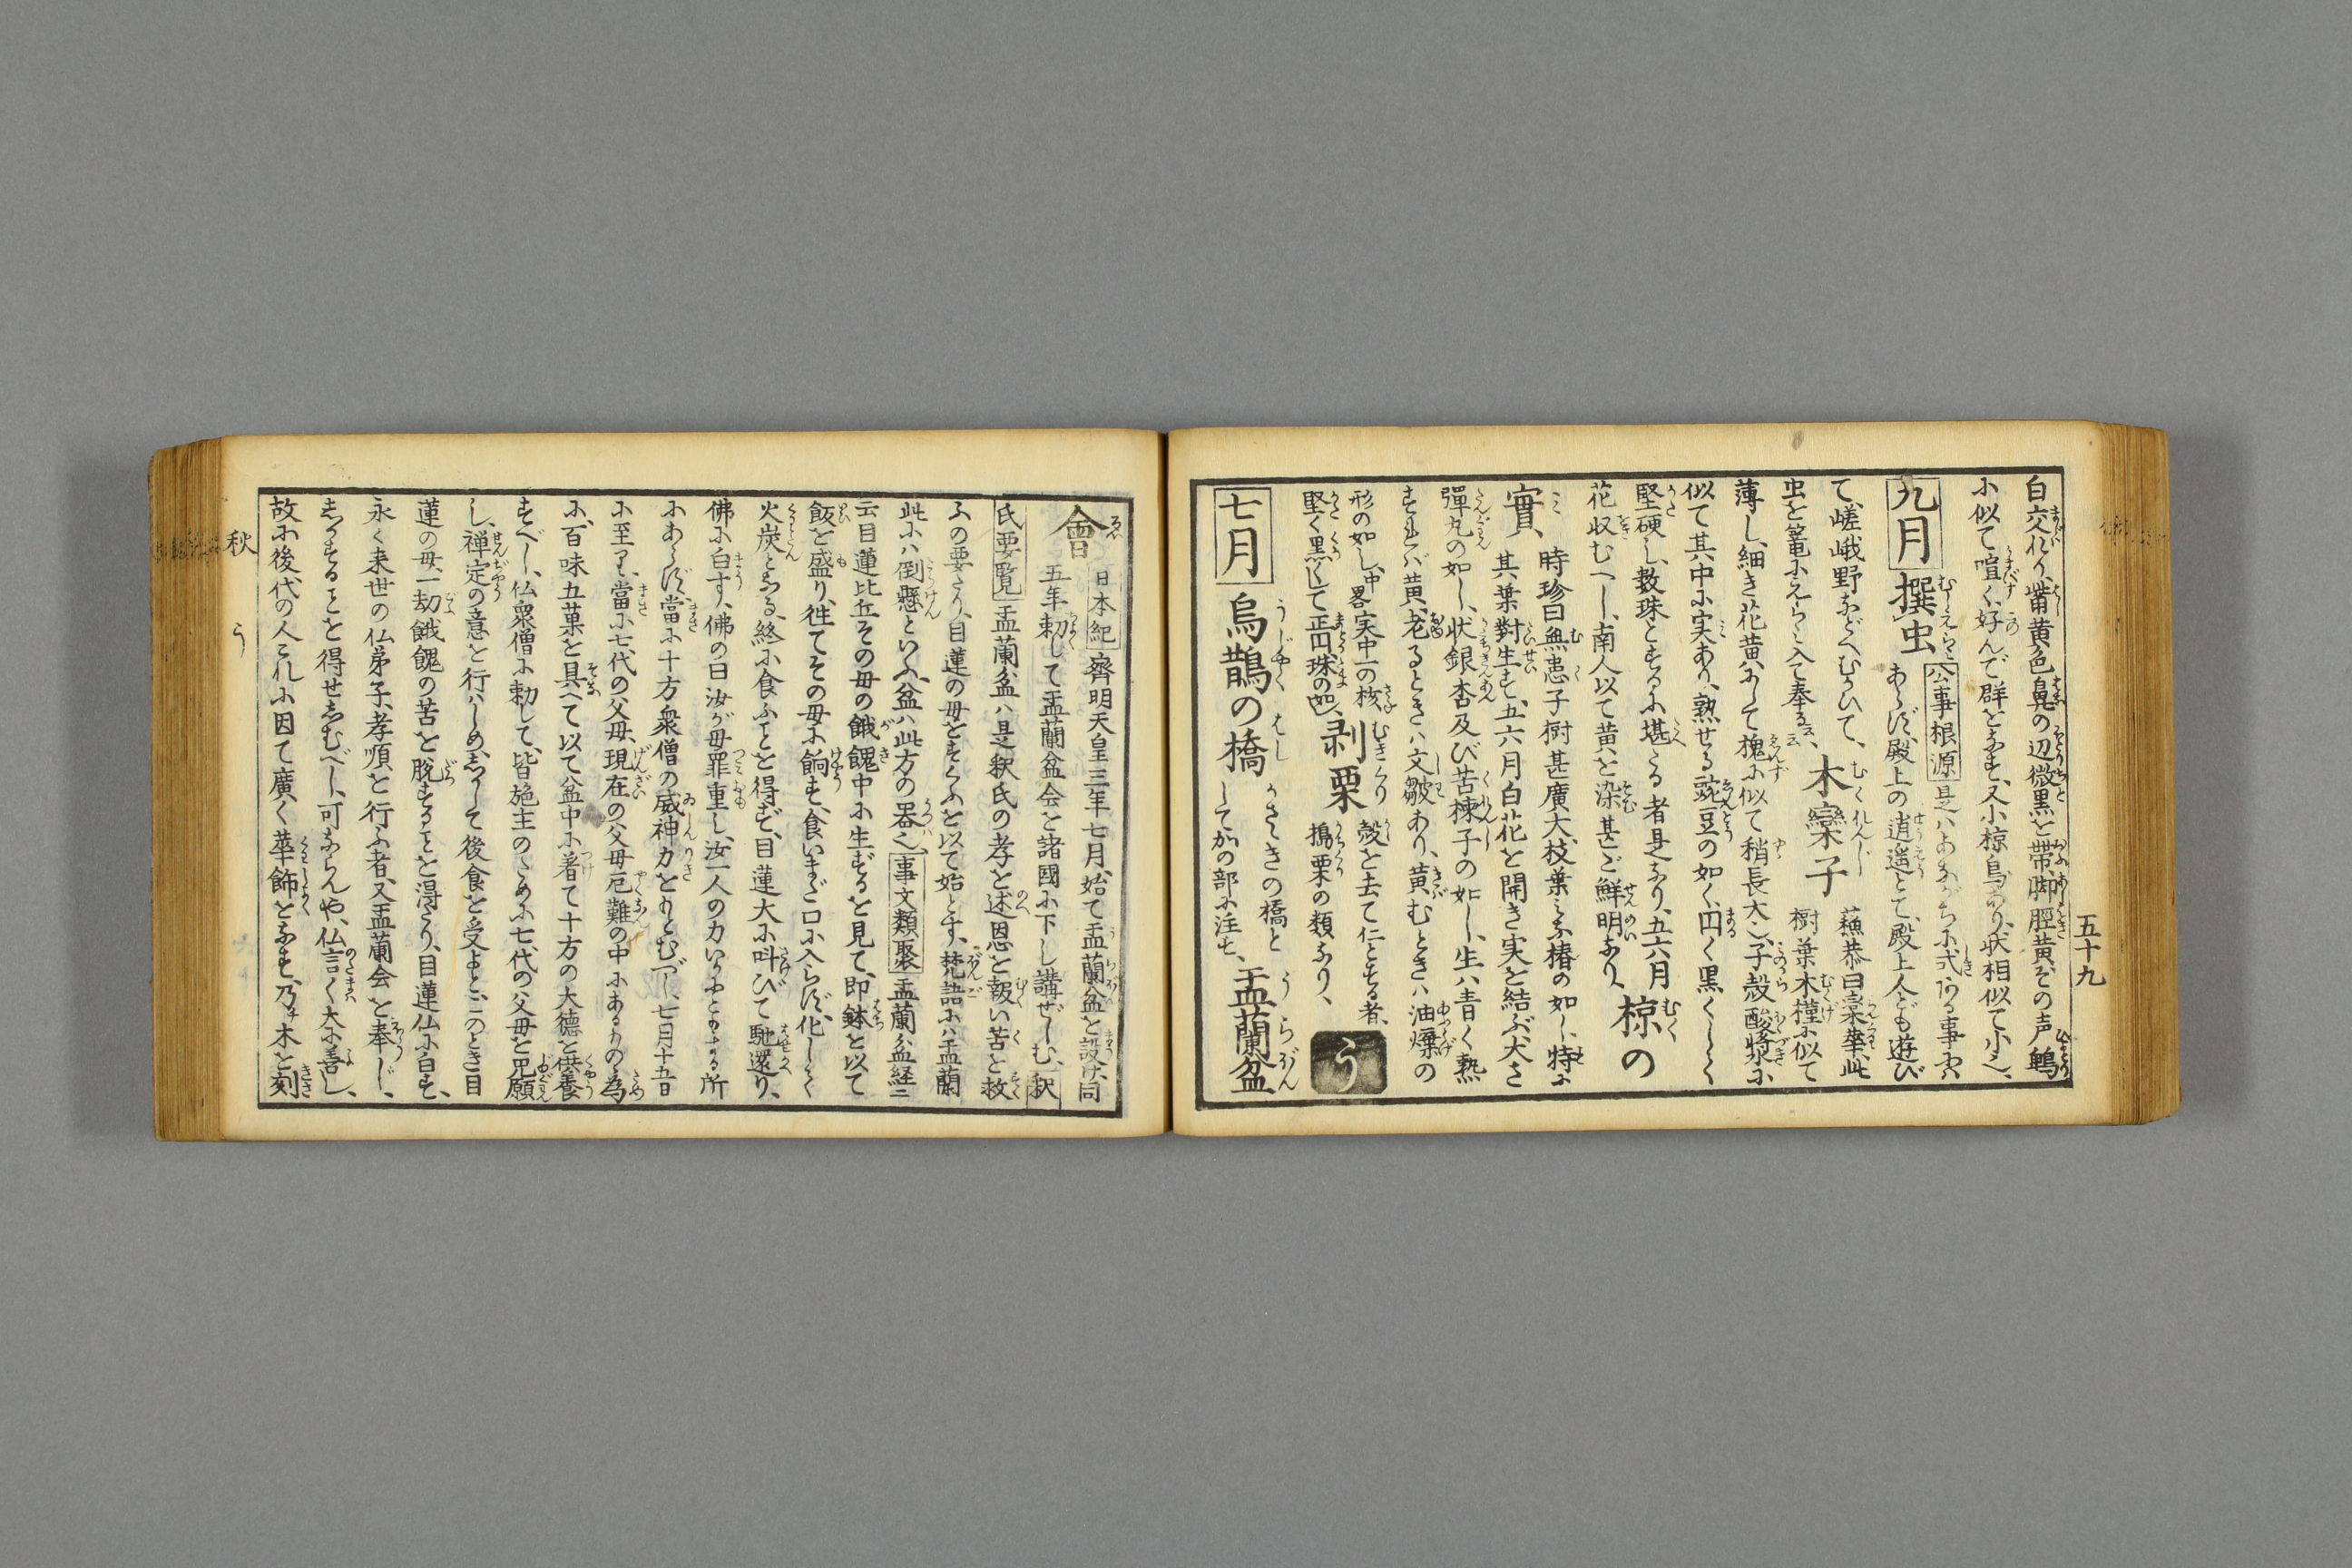 五十九
白交れり、觜黄色、鼻の辺微黒を帯、脚脛黄、その声鵯
に似て喧く、好んで群をなす、又小椋鳥あり、状相似て小之、
九月 撰虫 公事根源 是ハあながちに式ある事にハ
あらず、殿上の逍遥とて、殿上人ども遊び
て、嵯峨野などへむかひて、
虫を篭にえらミ入て奉る云云、
木欒子 蘓恭曰欒華、此
樹葉木槿に似て
薄し、細き花黄にして槐に似て稍長大之、子殻酸漿に
似て其中に実あり、熟せる豌豆の如く、円く黒くして
堅硬し、数珠とするに堪たる者是なり、五六月
花収むへし、南人以て黄を染、甚ご鮮明なり、 椋の
實 時珍曰無患子樹甚廣大、枝葉ミな椿の如し、特に
其葉對生す、五六月白花を開き実を結ぶ、大さ
彈丸の如し、状銀杏及び苦楝子の如し、生ハ青く熟
すれバ黄、老るときハ文皺あり、黄むときハ油煠の
形の如し、中畧実中一の核
堅く黒くして正円、珠の如、
剥栗 殻を去て仁とする者、
搗栗の類なり、
う
七月 烏鵲の橋 かさゝぎの橋と
してかの部に注す、
盂蘭盆
會 日本紀 齊明天皇三年七月、始て盂蘭盆を設け、同
五年勅して盂蘭盆会を諸國に下し講ぜしむ、釈
氏要覧 盂蘭盆ハ是釈氏の孝を述恩を報い苦を救
ふの要たり、目蓮の母をすくふを以て始とす、梵語にハ盂蘭
此にハ倒懸といふ、盆ハ此方の器之、 事文類聚 盂蘭盆経ニ
云目蓮比丘その母の餓鬼中に生ずるを見て、即鉢を以て
飯を盛り、往てその母に餉す、食いまだ口に入らず、化して
火炭となる、終に食ふことを得ず、目蓮大に叫びて馳還り、
佛に白す、佛の曰汝が母罪重し、汝一人の力いかんともする所
にあらず、當に十方衆僧の威神力をかりとむべし、七月十五日
に至り、當に七代の父母、現在の父母厄難の中にあるものゝ為
に、百味五菓を具へて以て盆中に著て十方の大德を供養
すべし、仏衆僧に勅して、皆施主のために七代の父母を咒願
し、禅定の意を行ハしめ、しかして後食を受よと、このとき目
蓮の母、一劫餓鬼の苦を脱することを得たり、目蓮仏に白す、
永く来世の仏弟子、孝順を行ふ者、又盂蘭会を奉じ、
しかすることを得せしむべし、可ならんや、仏言く大に善し、
故に後代の人これに因て廣く華飾をなす、乃チ木を刻
秋
う